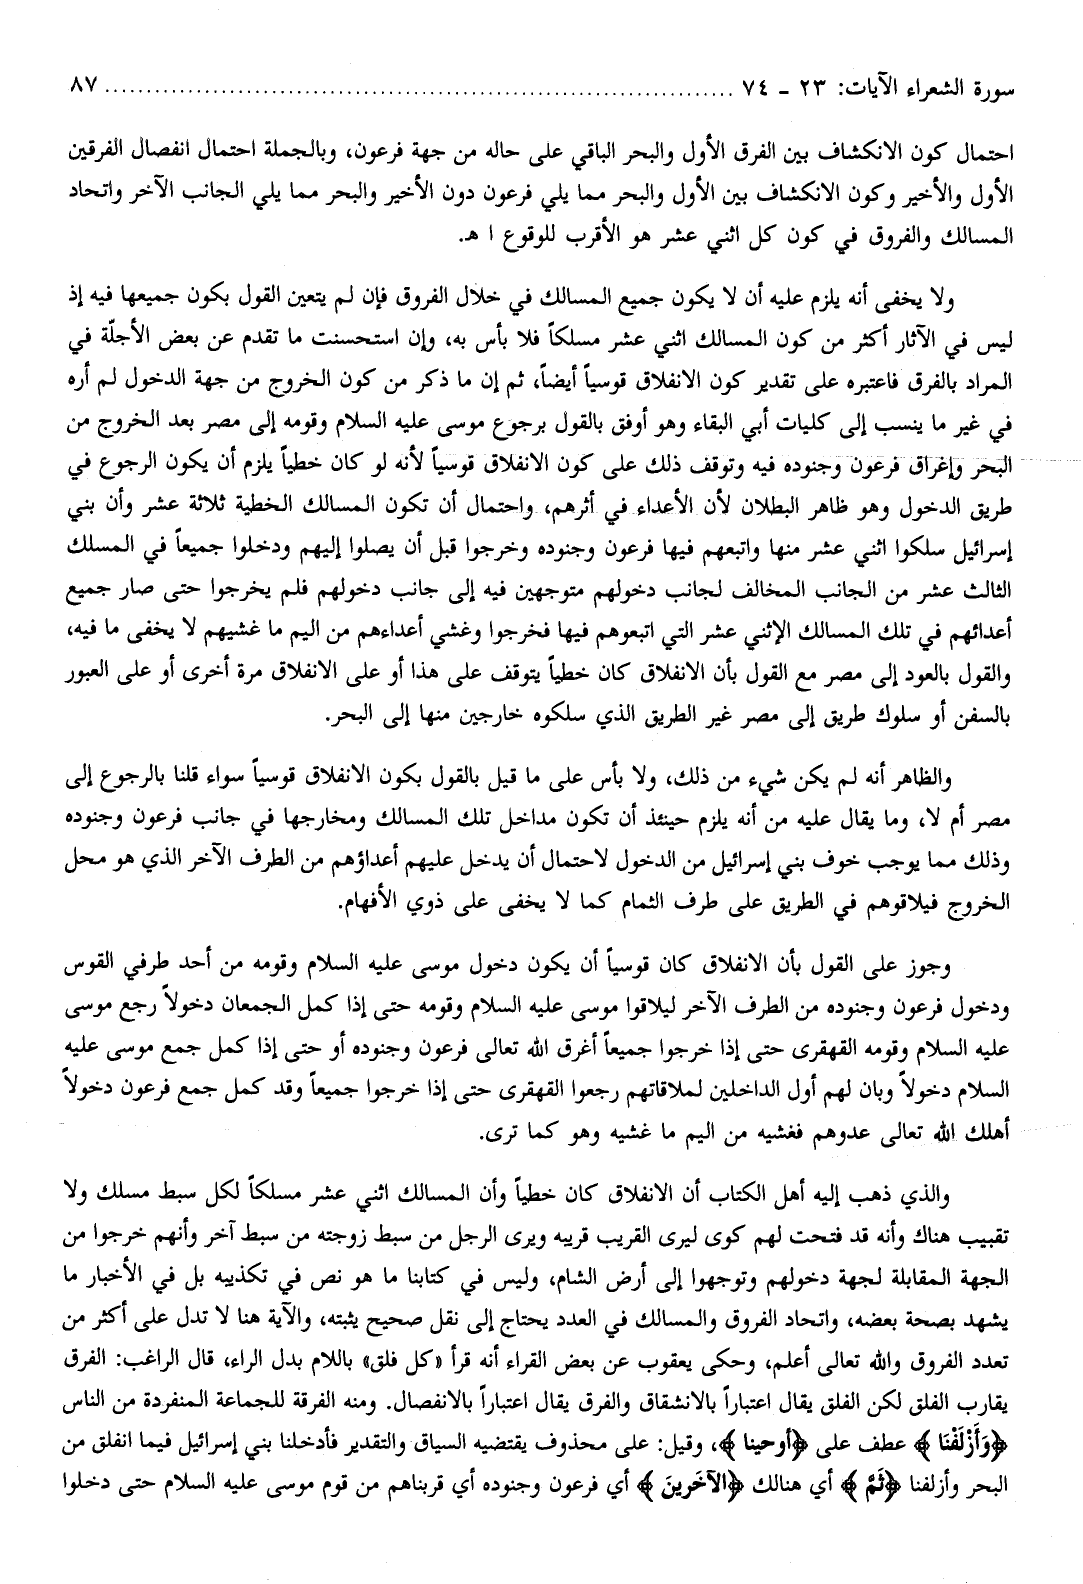 سورة الشعراء الآيات: ٢٣ ـ ٧٤ ........................................................................ ٨٧
احتمال كون الانكشاف بين الفرق الأول والبحر الباقي على حاله من جهة فرعون، وبالجملة احتمال انفصال الفرقين
الأول والأخير وكون الانكشاف بين الأول والبحر مما يلي فرعون دون الأخير والبحر مما يلي الجانب الآخر واتحاد
المسالك والفروق في كون كل اثني عشر هو الأقرب للوقوع ا هـ.
ولا يخفى أنه يلزم عليه أن لا يكون جميع المسالك في خلال الفروق فإن لم يتعين القول بكون جميعها فيه إذ
ليس في الآثار أكثر من كون المسالك اثني عشر مسلكاً فلا بأس به، وإن استحسنت ما تقدم عن بعض الأجلّة في
المراد بالفرق فاعتبره على تقدير كون الانفلاق قوسياً أيضاً، ثم إن ما ذكر من كون الخروج من جهة الدخول لم أره
في غير ما ينسب إلى كليات أبي البقاء وهو أوفق بالقول برجوع موسى عليه السلام وقومه إلى مصر بعد الخروج من
البحر وإغراق فرعون وجنوده فيه وتوقف ذلك على كون الانفلاق قوسياً لأنه لو كان خطياً يلزم أن يكون الرجوع في
طريق الدخول وهو ظاهر البطلان لأن الأعداء في أثرهم، واحتمال أن تكون المسالك الخطية ثلاثة عشر وأن بني
إسرائيل سلكوا اثني عشر منها واتبعهم فيها فرعون وجنوده وخرجوا قبل أن يصلوا إليهم ودخلوا جميعاً في المسلك
الثالث عشر من الجانب المخالف لجانب دخولهم متوجهين فيه إلى جانب دخولهم فلم يخرجوا حتى صار جميع
أعدائهم في تلك المسالك الإثني عشر التي اتبعوهم فيها فخرجوا وغشي أعداءهم من اليم ما غشيهم لا يخفى ما فيه،
والقول بالعود إلى مصر مع القول بأن الانفلاق كان خطياً يتوقف على هذا أو على الانفلاق مرة أخرى أو على العبور
بالسفن أو سلوك طريق إلى مصر غير الطريق الذي سلكوه خارجين منها إلى البحر.
والظاهر أنه لم يكن شيء من ذلك، ولا بأس على ما قيل بالقول بكون الانفلاق قوسياً سواء قلنا بالرجوع إلى
مصر أم لا، وما يقال عليه من أنه يلزم حينئذ أن تكون مداخل تلك المسالك ومخارجها في جانب فرعون وجنوده
وذلك مما يوجب خوف بني إسرائيل من الدخول لاحتمال أن يدخل عليهم أعداؤهم من الطرف الآخر الذي هو محل
الخروج فيلاقوهم في الطريق على طرف الثمام كما لا يخفى على ذوي الأفهام.
وجوز على القول بأن الانفلاق كان قوسياً أن يكون دخول موسى عليه السلام وقومه من أحد طرفي القوس
ودخول فرعون وجنوده من الطرف الآخر ليلاقوا موسى عليه السلام وقومه حتى إذا كمل الجمعان دخولاً رجع موسى
عليه السلام وقومه القهقرى حتى إذا خرجوا جميعاً أغرق الله تعالى فرعون وجنوده أو حتى إذا كمل جمع موسى عليه
السلام دخولاً وبان لهم أول الداخلين لملاقاتهم رجعوا القهقرى حتى إذا خرجوا جميعاً وقد كمل جمع فرعون دخولاً
أهلك الله تعالى عدوهم فغشيه من اليم ما غشيه وهو كما ترى.
والذي ذهب إليه أهل الكتاب أن الانفلاق كان خطياً وأن المسالك اثني عشر مسلكاً لكل سبط مسلك ولا
تقبيب هناك وأنه قد فتحت لهم كوى ليرى القريب قريبه ويرى الرجل من سبط زوجته من سبط آخر وأنهم خرجوا من
الجهة المقابلة لجهة دخولهم وتوجهوا إلى أرض الشام، وليس في كتابنا ما هو نص في تكذيبه بل في الأخبار ما
يشهد بصحة بعضه، واتحاد الفروق والمسالك في العدد يحتاج إلى نقل صحيح يثبته، والآية هنا لا تدل على أكثر من
تعدد الفروق والله تعالى أعلم، وحكى يعقوب عن بعض القراء أنه قرأ «كل فلق» باللام بدل الراء، قال الراغب: الفرق
يقارب الفلق لكن الفلق يقال اعتباراً بالانشقاق والفرق يقال اعتباراً بالانفصال. ومنه الفرقة للجماعة المنفردة من الناس
﴿وَأَزْلَفْنَا﴾ عطف على ﴿أوحينا﴾، وقيل: على محذوف يقتضيه السياق والتقدير فأدخلنا بني إسرائيل فيما انفلق من
البحر وأزلفنا ﴿ثَمَّ﴾ أي هنالك ﴿الآخَرينَ﴾ أي فرعون وجنوده أي قربناهم من قوم موسى عليه السلام حتى دخلوا